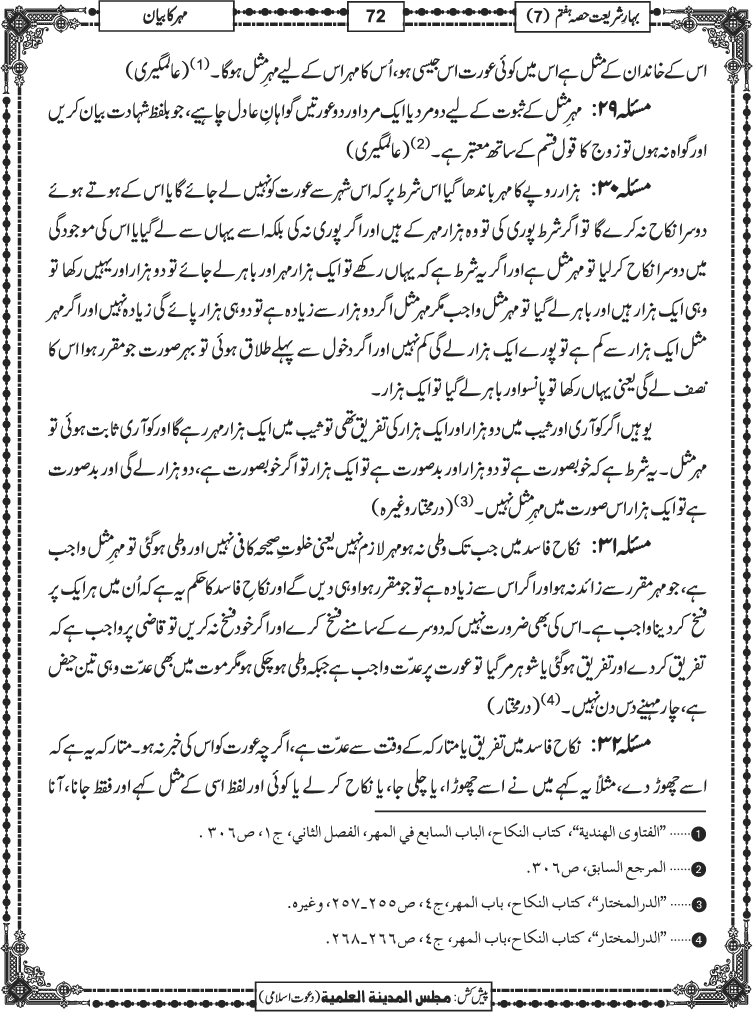 بہارِ شریعت حصہ ہفتم (7)
72
مہر کا بیان
اس کے خاندان کے مثل ہے اس میں کوئی عورت اس جیسی ہو، اُس کا مہر اس کے لیے مہرِ مثل ہوگا۔(1) (عالمگیری)
مسئلہ ۲۹: مہرِ مثل کے ثبوت کے لیے دو مرد یا ایک مرد اور دو عورتیں گواہانِ عادل چاہیے، جو بلفظِ شہادت بیان کریں
اور گواہ نہ ہوں تو زوج کا قول قسم کے ساتھ معتبر ہے۔(2) (عالمگیری)
مسئلہ ۳۰: ہزار روپے کا مہر باندھا گیا اس شرط پر کہ اس شہر سے عورت کو نہیں لے جائے گا یا اس کے ہوتے ہوئے
دوسرا نکاح نہ کرے گا تو اگر شرط پوری کی تو وہ ہزار مہر کے ہیں اور اگر پوری نہ کی بلکہ اسے یہاں سے لے گیا یا اس کی موجودگی
میں دوسرا نکاح کر لیا تو مہرِ مثل ہے اور اگر یہ شرط ہے کہ یہاں رکھے تو ایک ہزار مہر اور باہر لے جائے تو دو ہزار اور یہیں رکھا تو
وہی ایک ہزار ہیں اور باہر لے گیا تو مہرِ مثل واجب مگر مہرِ مثل اگر دو ہزار سے زیادہ ہے تو دو ہی ہزار پائے گی زیادہ نہیں اور اگر مہرِ
مثل ایک ہزار سے کم ہے تو پورے ایک ہزار لے گی کم نہیں اور اگر دخول سے پہلے طلاق ہوئی تو بہر صورت جو مقرر ہوا اس کا
نصف لے گی یعنی یہاں رکھا تو پانسو اور باہر لے گیا تو ایک ہزار۔
یوہیں اگر کوآری اور ثیب میں دو ہزار اور ایک ہزار کی تفریق تھی تو ثیب میں ایک ہزار مہر رہے گا اور کوآری ثابت ہوئی تو
مہرِ مثل۔ یہ شرط ہے کہ خوبصورت ہے تو دو ہزار اور بدصورت ہے تو ایک ہزار تو اگر خوبصورت ہے، دو ہزار لے گی اور بدصورت
ہے تو ایک ہزار اس صورت میں مہرِ مثل نہیں۔(3) (درمختار وغیرہ)
مسئلہ ۳۱: نکاح فاسد میں جب تک وطی نہ ہو مہر لازم نہیں یعنی خلوتِ صحیحہ کافی نہیں اور وطی ہوگئی تو مہرِ مثل واجب
ہے، جو مہر مقرر سے زائد نہ ہو اور اگر اس سے زیادہ ہے تو جو مقرر ہوا وہی دیں گے اور نکاحِ فاسد کا حکم یہ ہے کہ اُن میں ہر ایک پر
فسخ کر دینا واجب ہے۔ اس کی بھی ضرورت نہیں کہ دوسرے کے سامنے فسخ کرے اور اگر خود فسخ نہ کریں تو قاضی پر واجب ہے کہ
تفریق کر دے اور تفریق ہوگئی یا شوہر مر گیا تو عورت پر عدّت واجب ہے جبکہ وطی ہو چکی ہو مگر موت میں بھی عدّت وہی تین حیض
ہے، چار مہینے دس دن نہیں۔(4) (درمختار)
مسئلہ ۳۲: نکاح فاسد میں تفریق یا متارکہ کے وقت سے عدّت ہے، اگرچہ عورت کو اس کی خبر نہ ہو۔ متارکہ یہ ہے کہ
اسے چھوڑ دے، مثلاً یہ کہے میں نے اسے چھوڑا، یا چلی جا، یا نکاح کر لے یا کوئی اور لفظ اسی کے مثل کہے اور فقط جانا، آنا
1 ...... ”الفتاوی الھندیة“، کتاب النکاح، الباب السابع في المھر، الفصل الثاني، ج١، ص٣٠٦.
2 ...... المرجع السابق، ص٣٠٦.
3 ...... ”الدرالمختار“، کتاب النکاح، باب المھر، ج٤، ص٢٥٥ـ٢٥٧، وغیرہ.
4 ...... ”الدرالمختار“، کتاب النکاح، باب المھر، ج٤، ص٢٦٦ـ٢٦٨.
پیش کش: مجلس المدینة العلمیة (دعوت اسلامی)